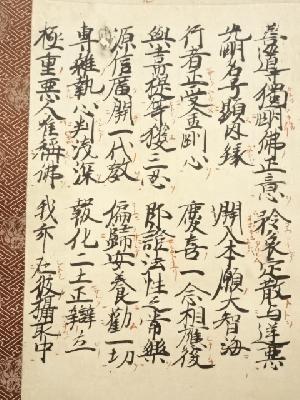 善導獨明佛正意 矜哀定散与逆悪
光明名号顯因縁 開入本願大智海
行者正受金剛心 慶喜一念相應後
與韋提等獲三忍 即證法性之常樂
源信廣開一代教 偏歸安養勸一切
専雜執心判浅深 報化二土正辯立
極重悪人唯稱佛 我亦在彼攝取中